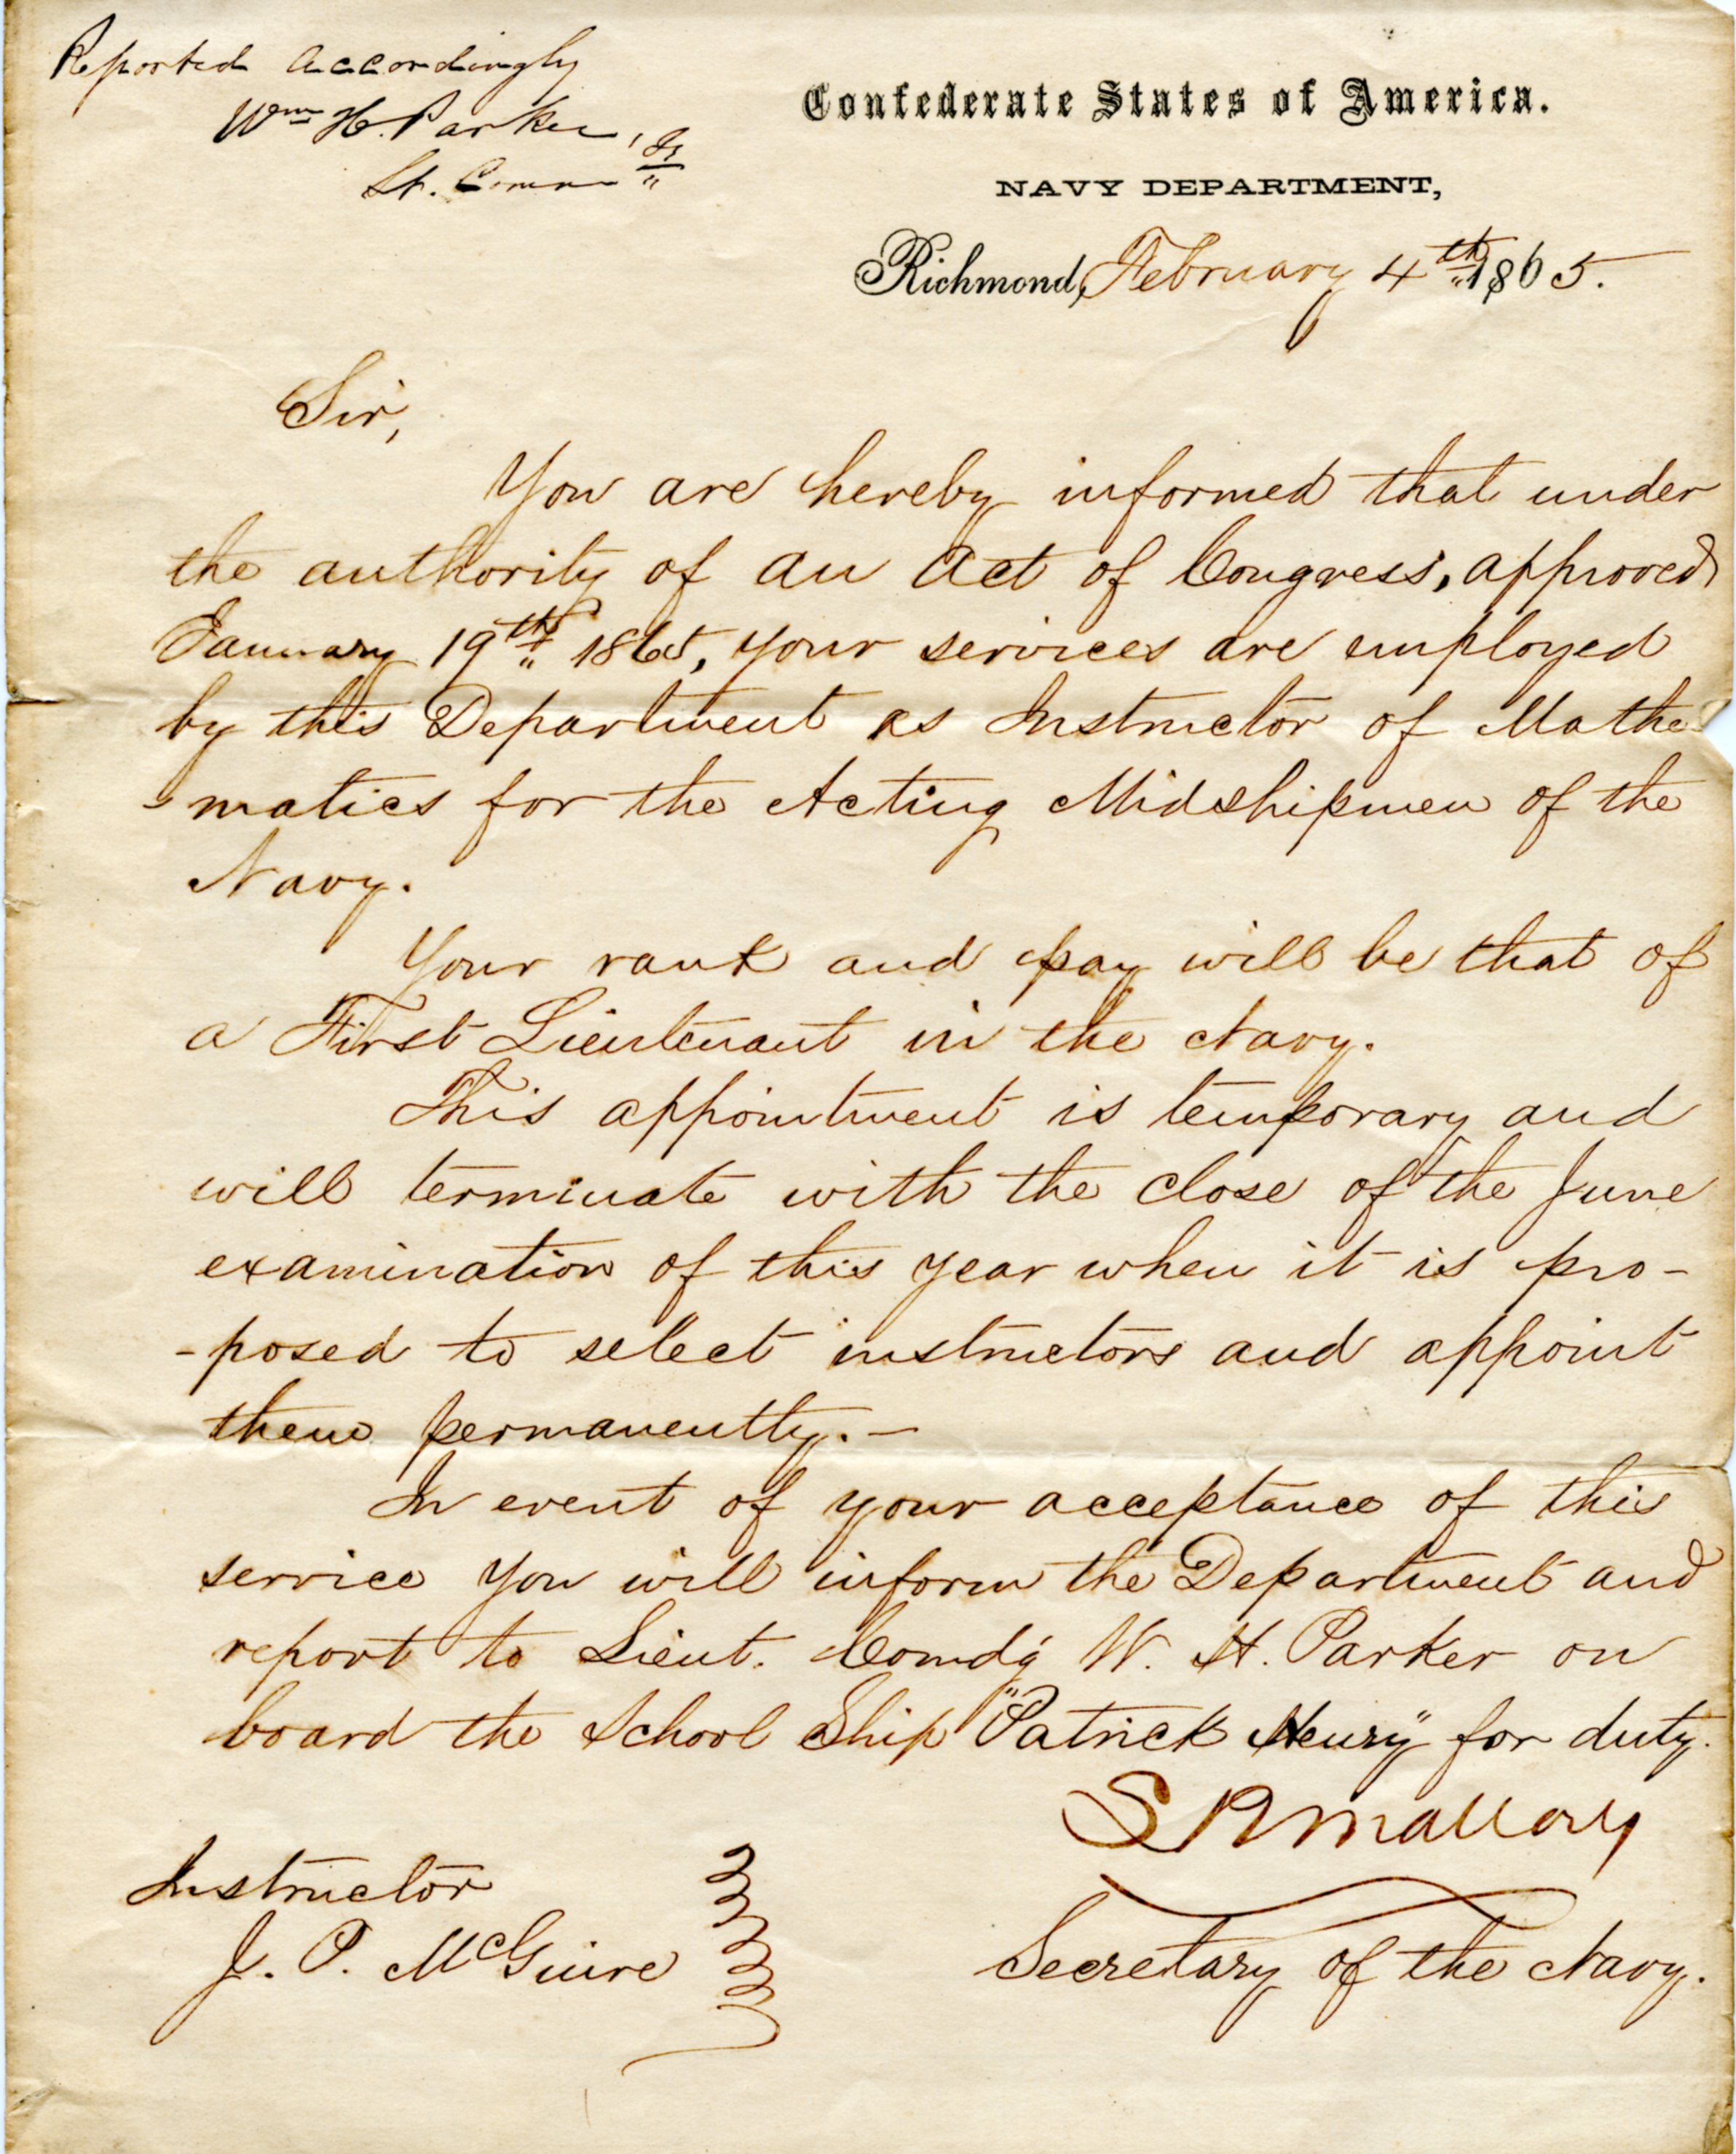 Reported accordingly
Wm H. Parker,
Lt. Comm
Confederate States of America.
NAVY DEPARTMENT,
Richmond, February 4th 1865.
Sir,
You are hereby informed that under
the authority of an Act of Congress, approved
January 19th 1865, your services are employed
by this Department as Instructor of Mathe
-matics for the Acting Midshipmen of the
Navy.
Your rank and pay will be that of
a First Lieutenant in the Navy.
This appointment is temporary and
will terminate with the close of the June
examination of this year when it is pro-
-posed to select instructors and appoint
them permanently. —
In event of your acceptance of this
service you will inform the Department and
report to Lieut. Comdg W. H. Parker on
board the School Ship "Patrick Henry" for duty.
S R Mallory
Secretary of the Navy.
Instructor
J. P. McGuire